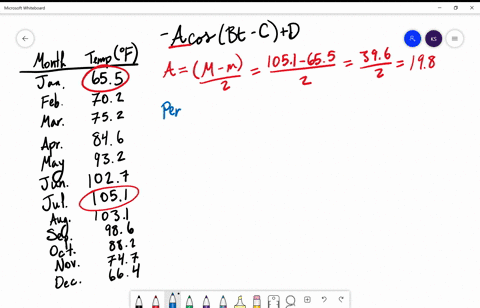 Microsoft Whiteboard
-Acos(Bt-C)+D
KS
Month Temp(°F)
Jan. 65.5
Feb. 70.2
Mar. 75.2
Apr. 84.6
May 93.2
Jun. 102.7
Jul. 105.1
Aug. 103.1
Sep. 98.6
Oct. 88.2
Nov. 74.7
Dec. 66.4
A = (M-m)/2 = 105.1-65.5/2 = 39.6/2 = 19.8
Per